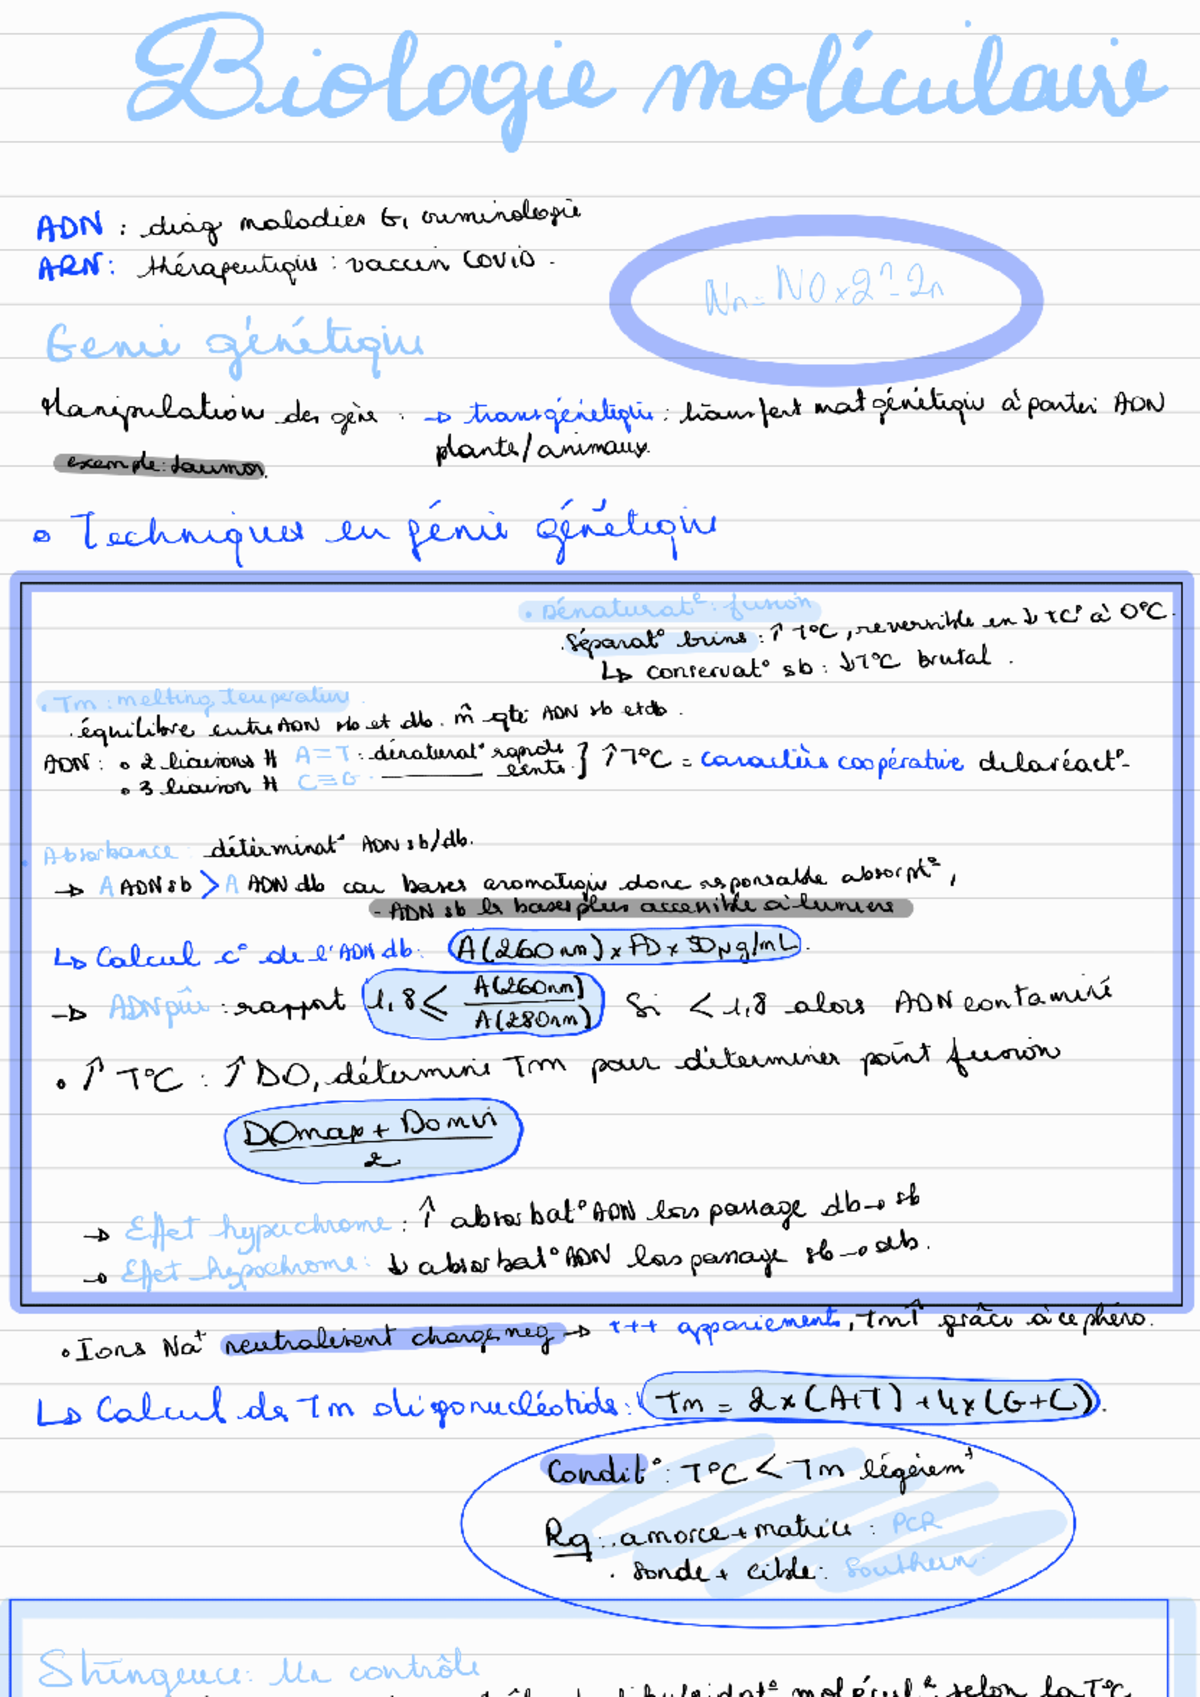 Biologie moléculaire
ADN : diag maladies G, criminologie
ARN : thérapeutique : vaccin COVID.
Nn = N0 x 2^n - 2n
Genie génétique
Manipulation des gène : → transgénétique : transfert mat génétique à partir ADN
plante/animaux.
exemple: saumon.
• Techniques en génie génétique
• Dénaturat°: fusion
. Séparat° brins : ↑ T°C, reversible en ↓ T°C à 0°C.
↳ conservat° sb : ↓T°C brutal .
• Tm : melting temperature
. équilibre entre ADN sb et db. m̂ qté ADN sb et db.
ADN : • 2 liaisons H A=T : dénaturat° rapide } ↑T°C = caractère coopérative de la réact°-
• 3 liaison H C≡G. ——— lente
• Absorbance : déterminat° ADN sb/db.
→ A ADN sb > A ADN db car bases aromatique donc responsable absorpt°,
- ADN sb ls bases plus accessible à lumiere
↳ Calcul c° de l'ADN db : A(260 nm) x FD x 50µg/mL.
→ ADN pûr : rapport 1,8 ≤ A(260nm)/A(280nm) Si < 1,8 alors ADN contaminé
• ↑ T°C : ↑ DO, détermine Tm pour déterminer point fusion
DOmax + DOmin
2
→ Effet hyperchrome : ↑ absorbat° ADN lors passage db → sb
→ Effet hypochrome : ↓ absorbat° ADN lors passage sb → db.
• Ions Na⁺ neutralisent charge neg → +++ appariements, Tm↑ grâce à ce phéno.
↳ Calcul de Tm oligonucléotide : Tm = 2x(A+T) + 4x(G+C).
Condit° : T°C < Tm légèrem^t
Rq : . amorce + matrice : PCR
. sonde + cible : Southern.
Stringence : Un contrôle
molécul° selon la T°C